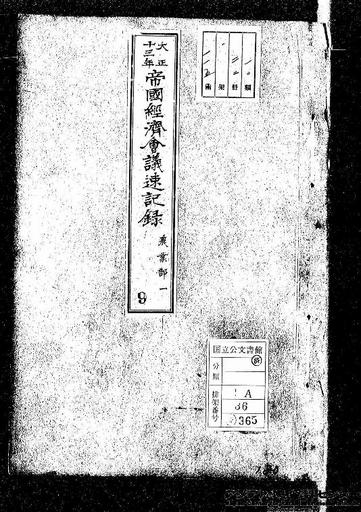 大正十三年
帝國經濟會議速記録
農業部一
9
類
冊
架
国立公文書館
分類
排架番号
A
36
365